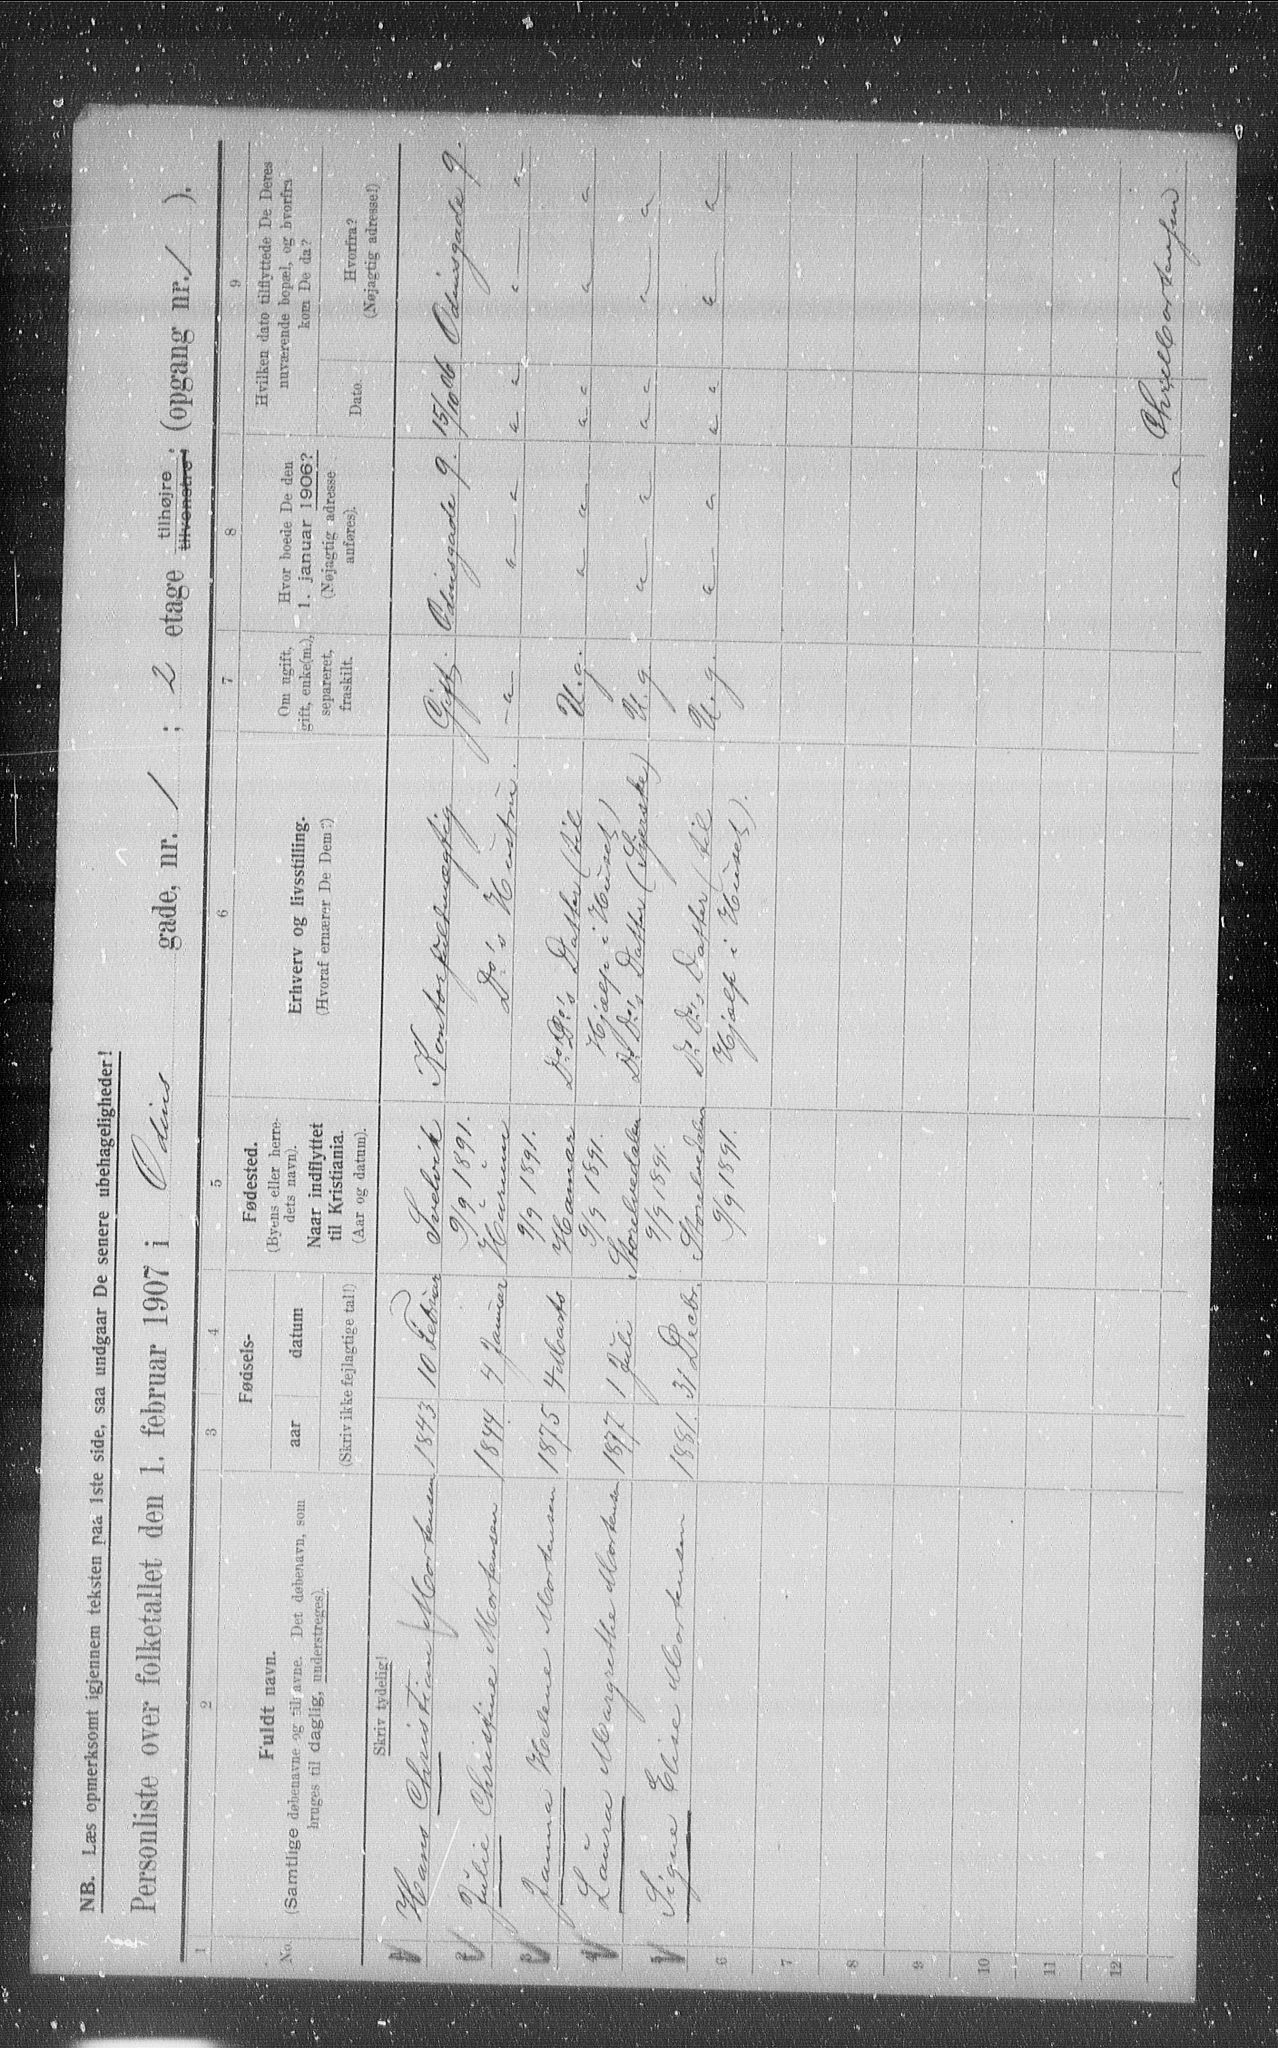 NB. Læs opmerksomt igjennem teksten paa 1ste side, saa undgaar De senere ubehageligheder!
Personliste over folketallet den 1. februar 1907 i Odins gade, nr. 1 ; 2 etage tilhøjre, tilvenstre, (opgang nr. / ).
1 2 3 4 5 6 7 8 9
No. Fuldt navn. (Samtlige døbenavne og tilnavne. Det døbenavn, som bruges til daglig, understreges).
Fødsels- aar datum (Skriv ikke fejlagtige tal!)
Fødested. (Byens eller herredets navn). Naar indflyttet til Kristiania. (Aar og datum).
Erhverv og livsstilling. (Hvoraf ernærer De Dem?)
Om ugift, gift, enke(m.), separeret, fraskilt.
Hvor boede De den 1. januar 1906? (Nøjagtig adresse anføres).
Hvilken dato tilflyttede De Deres nuværende bopæl, og hvorfra kom De da?
Dato. Hvorfra? (Nøjagtig adresse!)
Skriv tydelig!
1 Hans Christian Mortensen 1843 10 Februar Svelvik 9/9 1891. Kontorfuldmægtig Gift. Odinsgade 9. 15/10 06 Odinsgade 9.
2 Julie Christine Mortensen 1844 4 Januar Hurum 9/9 1891. Do's Hustru. -"- " - " " " " - "
3 Janna Helene Mortensen 1875 4 Marts Hamar 9/9 1891. Do. Do's Datter (til Hjælp i Huset) U.g. " - " " " " - "
4 Laura Margrethe Mortensen 1877 12 Juli Storelvedalen 9/9 1891. Do. Do's Datter (Syerske) U.g. " - " " " " - "
5 Signe Elise Mortensen 1881. 31 Decbr. Storelvedalen 9/9 1891. Do. Do's Datter (til Hjælp i Huset). U.g. " - " " " " - "
6
7
8
9
10
11
12
Chr. Mortensen